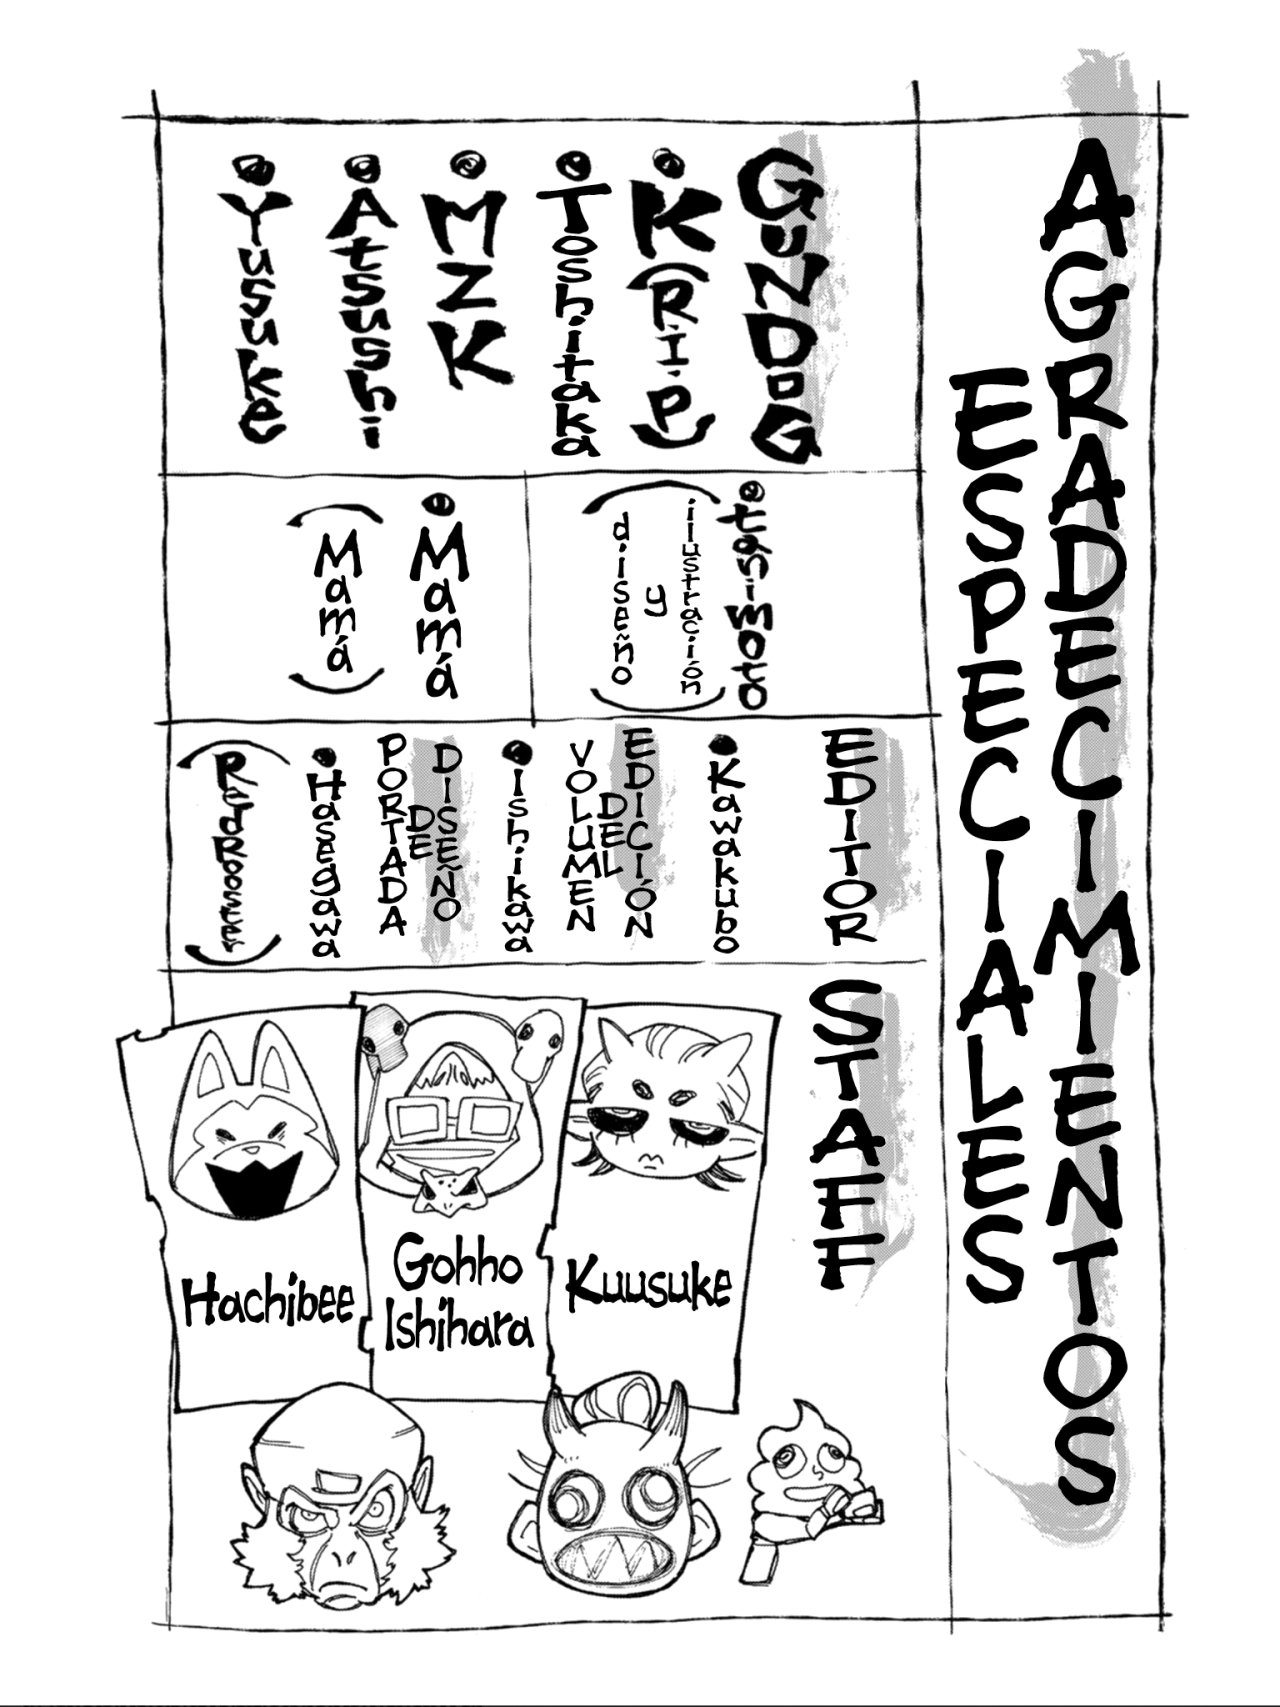 AGRADECIMIENTOS
ESPECIALES
GUNDOG
K (R.I.P)
Toshitaka
MZK
Atsushi
Yusuke
tanimoto
(ilustración
y
diseño)
Mamá
(Mamá)
EDITOR
Kawakubo
EDICIÓN
DEL
VOLUMEN
Ishikawa
DISEÑO
DE
PORTADA
Hasegawa
(RedRooster)
STAFF
Kuusuke
Gohho
Ishihara
Hachibee